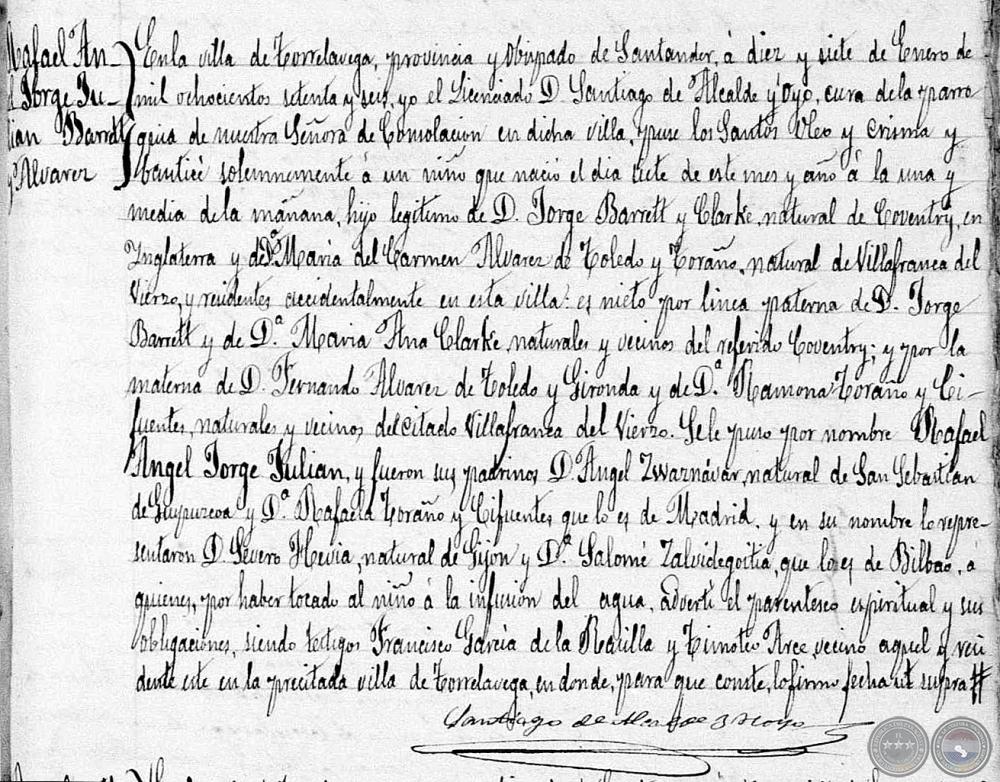 Rafael An-
l Jorge Ju-
lian Barrett
y Alvarez
En la villa de Torrelavega, provincia y obispado de Santander, á diez y siete de Enero de
mil ochocientos setenta y seis, yo el Licenciado D. Santiago de Alcalde y Oyo, cura de la parro
quia de nuestra Señora de Consolacion en dicha villa, puse los Santos Oleo y Crisma y
bauticé solemnemente á un niño que nació el dia siete de este mes y año á la una y
media de la mañana, hijo legitimo de D. Jorge Barrett y Clarke, natural de Coventry, en
Ynglaterra y de Dª Maria del Carmen Alvarez de Toledo y Toraño, natural de Villafranca del
Vierzo, y residentes accidentalmente en esta villa: es nieto por linea paterna de D. Jorge
Barrett y de Dª Maria Ana Clarke, naturales y vecinos del referido Coventry; y por la
materna de D. Fernando Alvarez de Toledo y Gironda y de Dª Ramona Toraño y Ci-
fuentes, naturales y vecinos del citado Villafranca del Vierzo. Se le puso por nombre Rafael
Angel Jorge Julian, y fueron sus padrinos D. Angel Zwaznávar, natural de San Sebastian
de Guypuzcoa y Dª Rafaela Toraño y Cifuentes que lo es de Madrid, y en su nombre lo repre-
sentaron D. Severo Hevia, natural de Gijon y Dª Salomé Zalvidegoitia, que lo es de Bilbao, á
quienes, por haber tocado al niño á la infusion del agua, advertí el parentesco espiritual y sus
obligaciones, siendo testigos Francisco Garcia de la Rasilla y Timoteo Arce, vecino aquel y resi
dente este en la precitada villa de Torrelavega, en donde, para que conste, lo firmo fecha ut supra #
Santiago de Alcalde y Oyo